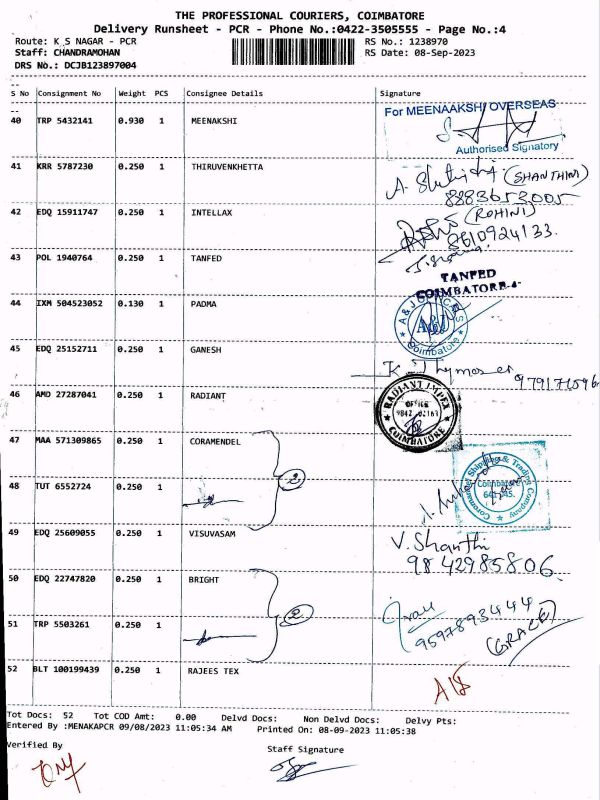 THE PROFESSIONAL COURIERS, COIMBATORE
Delivery Runsheet - PCR - Phone No.:0422-3505555 - Page No.:4
Route: K S NAGAR - PCR RS No.: 1238970
Staff: CHANDRAMOHAN RS Date: 08-Sep-2023
DRS No.: DCJB123897004
S No Consignment No Weight PCS Consignee Details Signature
40 TRP 5432141 0.930 1 MEENAKSHI
For MEENAAKSHI OVERSEAS
Authorised Signatory
41 KRR 5787230 0.250 1 THIRUVENKHETTA
(SHANTHINI)
8883653005
42 EDQ 15911747 0.250 1 INTELLAX
(ROHINI)
8610924133.
43 POL 1940764 0.250 1 TANFED
TANFED
COIMBATORE-4
44 IXM 504523052 0.130 1 PADMA
A&J
Coimbatore
45 EDQ 25152711 0.250 1 GANESH
46 AMD 27287041 0.250 1 RADIANT
RADIANT IMPEX
OFFICE
COIMBATORE
47 MAA 571309865 0.250 1 CORAMENDEL
Coromandel Shipping & Trading Company
Coimbatore
48 TUT 6552724 0.250 1
2
49 EDQ 25609055 0.250 1 VISUVASAM
V. Shanthi
9842985806
50 EDQ 22747820 0.250 1 BRIGHT
9597893444
(GRACE)
51 TRP 5503261 0.250 1
2
52 BLT 100199439 0.250 1 RAJEES TEX
Tot Docs: 52 Tot COD Amt: 0.00 Delvd Docs: Non Delvd Docs: Delvy Pts:
Entered By :MENAKAPCR 09/08/2023 11:05:34 AM Printed On: 08-09-2023 11:05:38
Verified By Staff Signature